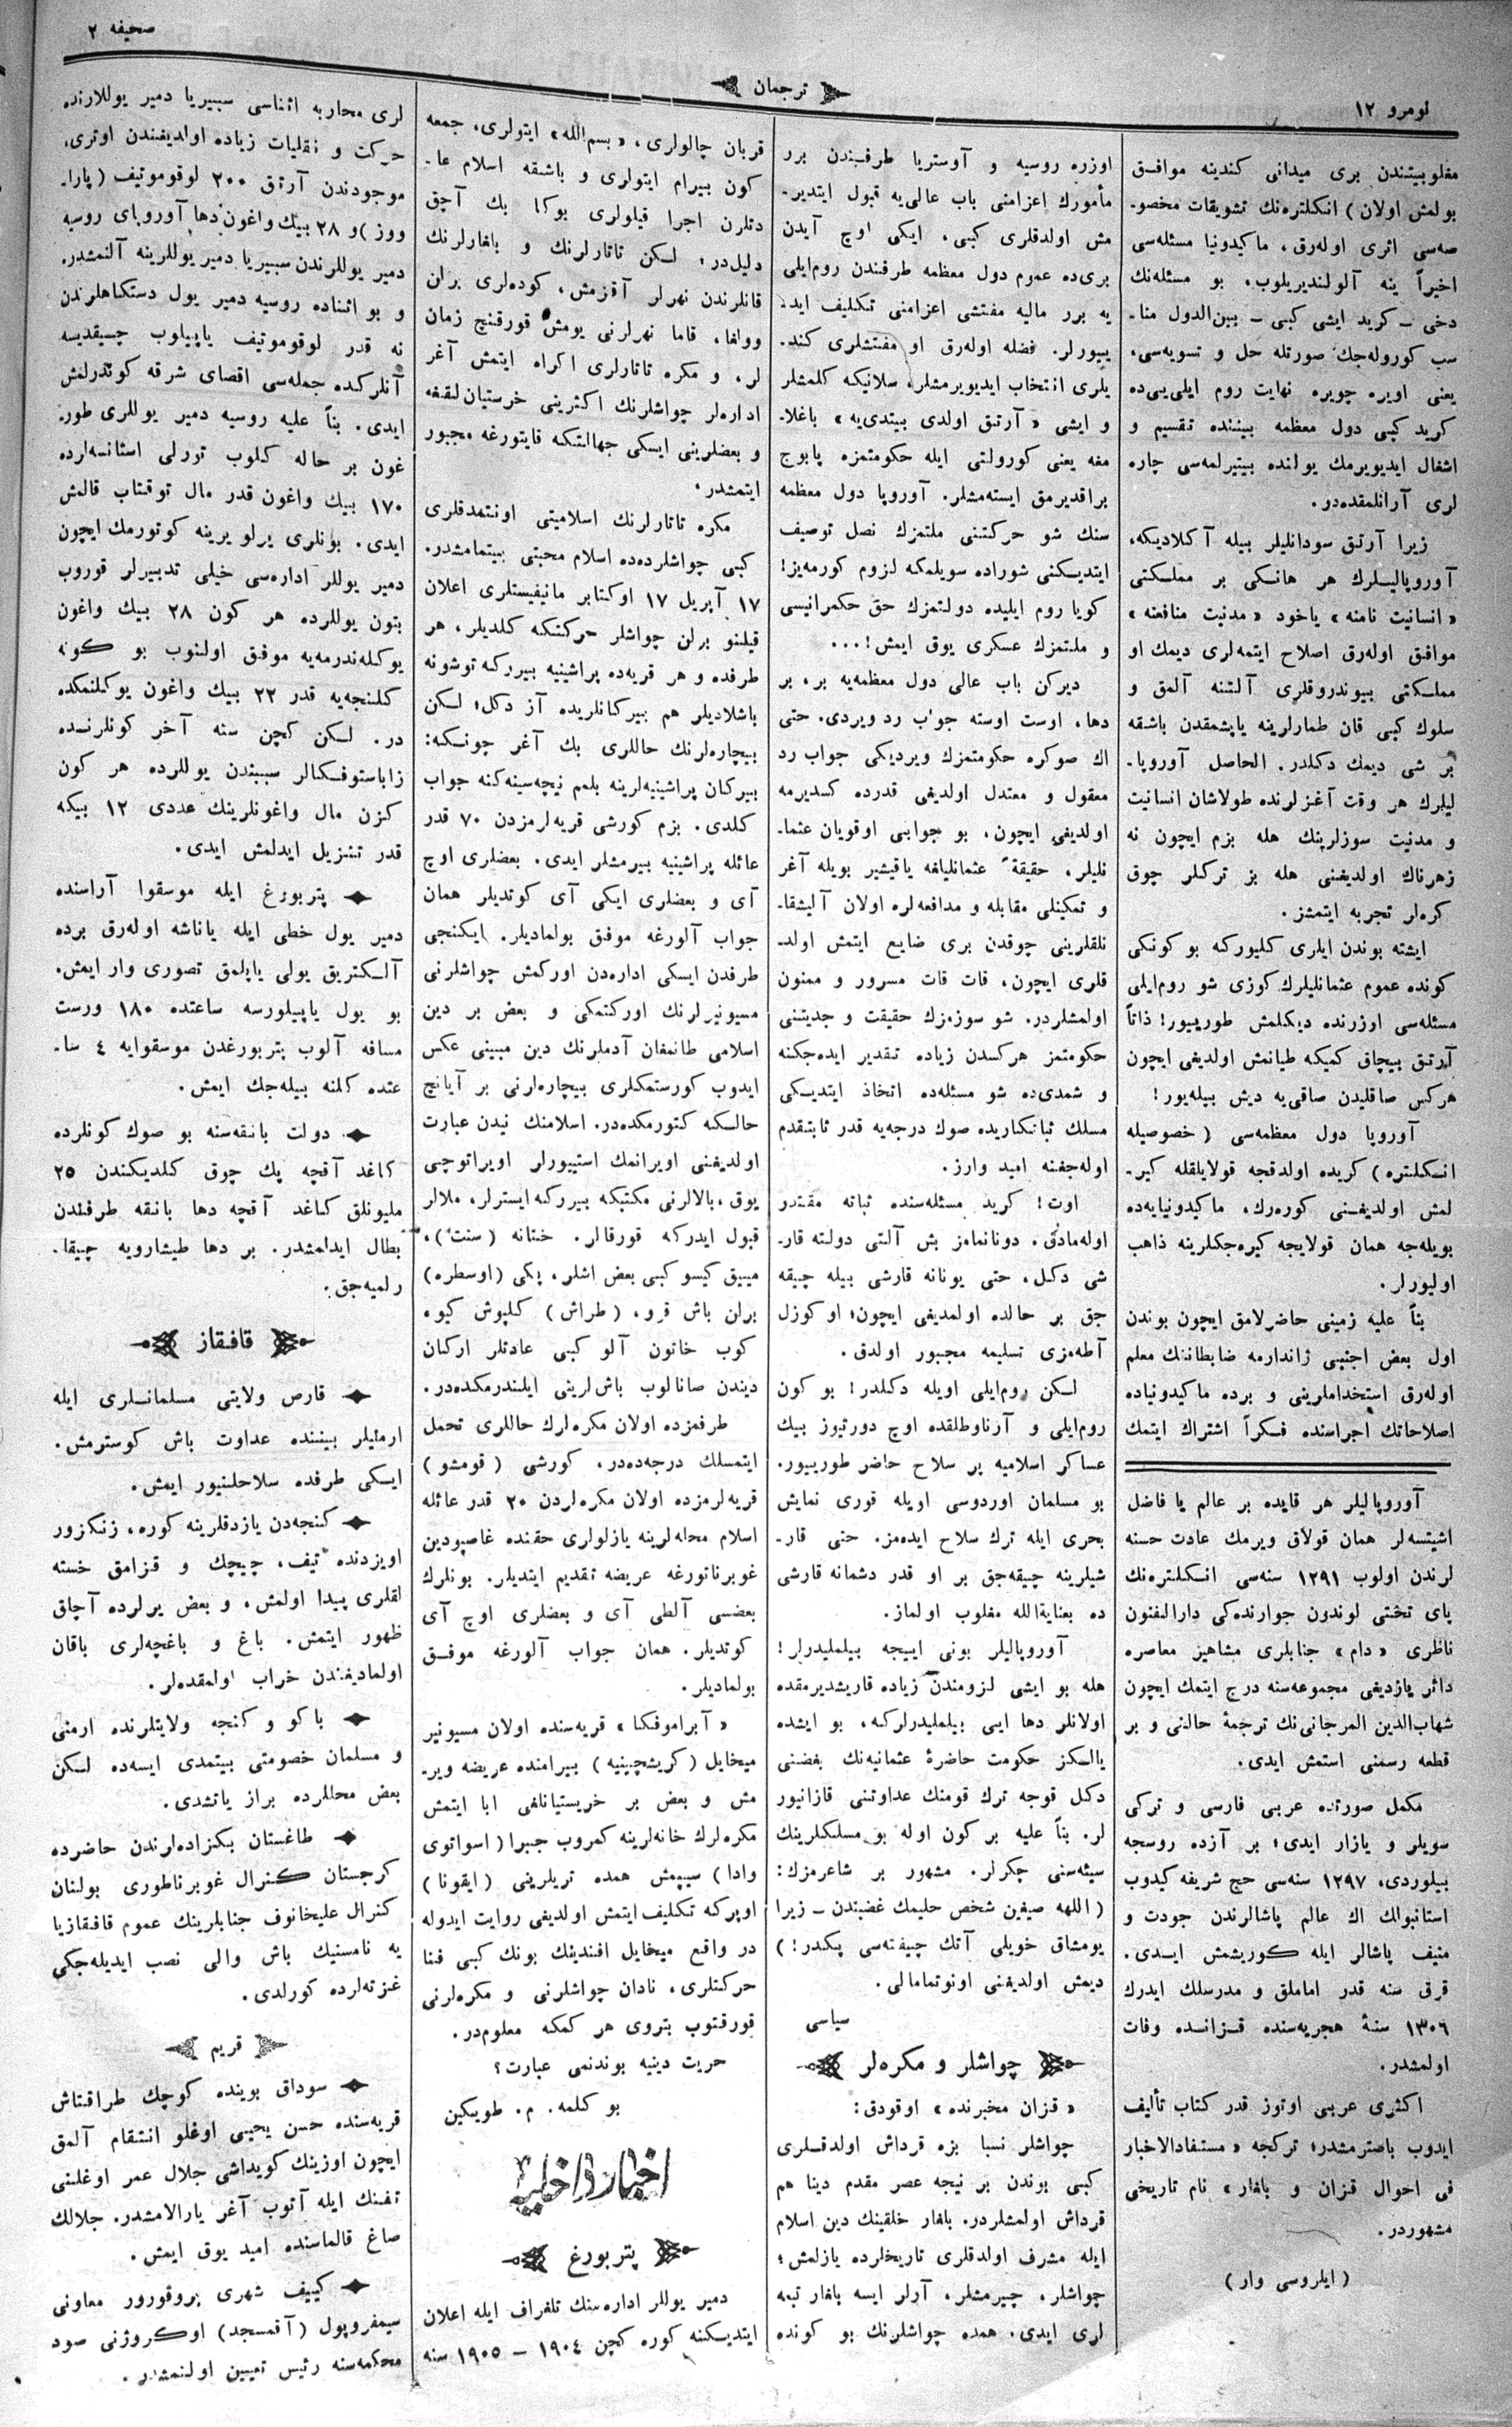 نومرو ١٢
ترجمان
صحیفه ٢
مغلوبیتندن بری میدانی کندینه موافق
بولمش اولان) انکلتره‌نك تشویقات مخصو-
صه‌سی اثری اوله‌رق، ماکیدونیا مسئله‌سی
اخیراً ینه آلولندیریلوب، بو مسئله‌نك
دخی ـ کرید ایشی کبی ـ بین‌الدول منا-
سب کوروله‌جك صورتله حل و تسویه‌سی،
یعنی اویره چویره نهایت روم ایلی‌یی‌ده
کرید کبی دول معظمه بیننده تقسیم و
اشغال ایدیویرمك یولنده بیتیرلمه‌سی چاره
لری آرانلمقده‌در.
زیرا آرتق سودانلیلر بیله آکلادیکه،
آوروپالیلرك هر هانکی بر مملکتی
«انسانیت نامنه» یاخود «مدنیت منافعنه»
موافق اوله‌رق اصلاح ایتمه‌لری دیمك او
مملکتی بیوندروقلری آلتنه آلمق و
سلوك کبی قان طمارلرینه یاپشمقدن باشقه
بر شی دیمك دکلدر. الحاصل آوروپا-
لیلرك هر وقت آغزلرنده طولاشان انسانیت
و مدنیت سوزلرینك هله بزم ایچون نه
زهرناك اولدیغنی هله بز ترکلر چوق
کره‌لر تجربه ایتمشز.
ایشته بوندن ایلری کلیورکه بو کونکی
کونده عموم عثمانلیلرك کوزی شو روم‌ایلی
مسئله‌سی اوزرنده دیکلمش طوریییور! ذاتاً
آرتق بیچاق کمیکه طیانمش اولدیغی ایچون
هرکس صاقلیدن صاقی‌یه دیش بیله‌یور!
آوروپا دول معظمه‌سی (خصوصیله
انکلتره) کریده اولدقجه قولایلقله کیر-
لمش اولدیغنی کوره‌رك، ماکیدونیایه‌ده
بویله‌جه همان قولایجه کیره‌جکلرینه ذاهب
اولیورلر.
بناً علیه زمینی حاضرلامق ایچون بوندن
اول بعض اجنبی ژاندارمه ضابطاننك معلم
اوله‌رق استخداملرینی و برده ماکیدونیاده
اصلاحاتك اجراسنده فکراً اشتراك ایتمك
آوروپالیلر هر قایده بر عالم یا فاضل
اشیتسه‌لر همان قولاق ویرمك عادت حسنه
لرندن اولوب ١٢٩١ سنه‌سی انکلتره‌نك
پای تختی لوندون جوارنده‌کی دارالفنون
ناظری «دام» جنابلری مشاهیر معاصره
دائر یازدیغی مجموعه‌سنه درج ایتمك ایچون
شهاب‌الدین المرجانی‌نك ترجمهٔ حالنی و بر
قطعه رسمنی استمش ایدی.
مکمل صورتده عربی فارسی و ترکی
سویلر و یازار ایدی؛ بر آزده روسجه
بیلوردی، ١٢٩٧ سنه‌سی حج شریفه کیدوب
استانبولك اك عالم پاشالرندن جودت و
منیف پاشالر ایله کوریشمش ایدی.
قرق سنه قدر اماملق و مدرسلك ایدرك
١٣٠٦ سنهٔ هجریه‌سنده قزانده وفات
اولمشدر.
اکثری عربی اوتوز قدر کتاب تألیف
ایدوب باصترمشدر؛ ترکجه «مستفادالاخبار
فی احوال قزان و بلغار» نام تاریخی
مشهوردر.
(ایلروسی وار)
اوزره روسیه و آوستریا طرفندن برر
مأمورك اعزامنی باب عالی‌یه قبول ایتدیر-
مش اولدقلری کبی، ایکی اوچ آیدن
بری‌ده عموم دول معظمه طرفندن روم‌ایلی
یه برر مالیه مفتشی اعزامنی تکلیف ایدـ
ییورلر. فضله اوله‌رق او مفتشلری کند-
یلری انتخاب ایدیویرمشلر، سلانیکه کلمشلر
و ایشی «آرتق اولدی بیتدی‌یه» باغلا-
مغه یعنی کورولتی ایله حکومتمزه پابوج
براقدیرمق ایسته‌مشلر. آوروپا دول معظمه
سنك شو حرکتنی ملتمزك نصل توصیف
ایتدیکنی شوراده سویلمکه لزوم کورمه‌یز!
کویا روم ایلیده دولتمزك حق حکمرانیسی
و ملتمزك عسکری یوق ایمش!...
دیرکن باب عالی دول معظمه‌یه بر، بر
دها، اوست اوسته جواب رد ویردی. حتی
اك صوکره حکومتمزك ویردیکی جواب رد
معقول و معتدل اولدیغی قدرده کسدیرمه
اولدیغی ایچون، بو جوابی اوقویان عثما-
نلیلر، حقیقةً عثمانلیلغه یاقیشیر بویله آغر
و تمکینلی مقابله و مدافعه‌لره اولان آلیشقا-
نلقلرینی چوقدن بری ضایع ایتمش اولد-
قلری ایچون، قات قات مسرور و ممنون
اولمشلردر. شو سوزمزك حقیقت و جدیتنی
حکومتمز هرکسدن زیاده تقدیر ایده‌جکنه
و شمدی‌ده شو مسئله‌ده اتخاذ ایتدیکی
مسلك ثباتکاریده صوك درجه‌یه قدر ثابتقدم
اوله‌جغنه امید وارز.
اوت! کرید مسئله‌سنده ثباته مقتدر
اوله‌مادق. دونانمامز بش آلتی دولته قار-
شی دکل، حتی یونانه قارشی بیله چیقه
جق بر حالده اولمدیغی ایچون؛ او کوزل
آطه‌مزی تسلیمه مجبور اولدق.
لکن روم‌ایلی اویله دکلدر! بو کون
روم‌ایلی و آرناوطلقده اوچ دورتیوز بیك
عساکر اسلامیه بر سلاح حاضر طوریییور.
بو مسلمان اوردوسی اویله قوری نمایش
بحری ایله ترك سلاح ایده‌مز. حتی قار-
شیلرینه چیقه‌جق بر او قدر دشمانه قارشی
ده بعنایةالله مغلوب اولماز.
آوروپالیلر بونی اییجه بیلملیدرلر!
هله بو ایشی لزومندن زیاده قاریشدیرمقده
اولانلر دها ایی بیلملیدرلرکه، بو ایشده
یالکز حکومت حاضرهٔ عثمانیه‌نك بغضنی
دکل قوجه ترك قومنك عداوتنی قازانیور
لر. بناً علیه بر کون اوله بو مسلکلرینك
سیئه‌سنی چکرلر. مشهور بر شاعرمزك:
(اللهه صیغین شخص حلیمك غضبندن ـ زیرا
یومشاق خویلی آتك چیفته‌سی پکدر!)
دیمش اولدیغنی اونوتمامالی.
سیاسی
چواشلر و مکره‌لر
«قزان مخبرنده» اوقودق:
چواشلر نسبا بزه قرداش اولدقلری
کبی بوندن بر نیجه عصر مقدم دینا هم
قرداش اولمشلردر. بلغار خلقینك دین اسلام
ایله مشرف اولدقلری تاریخلرده یازلمش؛
چواشلر، چیرمشلر، آرلر ایسه بلغار تبعه
لری ایدی. همده چواشلرنك بو کونده
قربان چالولری، «بسم‌الله» ایتولری، جمعه
کون بیرام ایتولری و باشقه اسلام عا-
دتلرن اجرا قیلولری بوکا بك آچق
دلیلدر؛ لکن تاتارلرنك و بلغارلرنك
قانلرندن نهرلر آقزمش، کوده‌لری برلن
وولغا، قاما نهرلرنی یومش قورقنچ زمان
لر، و مکره تاتارلری اکراه ایتمش آغر
اداره‌لر چواشلرنك اکثرینی خرستیانلقغه
و بعضلرینی ایسکی جهالتکه قایتورغه مجبور
ایتمشدر.
مکره تاتارلرنك اسلامیتی اونتمدقلری
کبی چواشلرده‌ده اسلام محبتی بیتمامشدر.
١٧ آپریل ١٧ اوکتابر مانیفیستلری اعلان
قیلنو برلن چواشلر حرکتکه کلدیلر، هر
طرفده و هر قریه‌ده پراشینیه بیررکه توشونه
باشلادیلر هم بیرکانلریده آز دکل؛ لکن
بیچاره‌لرنك حاللری بك آغر چونکه:
بیرکان پراشینیه‌لرینه بلمم نیچه‌سینه‌کنه جواب
کلدی. بزم کورشی قریه‌لرمزدن ٧٠ قدر
عائله پراشینیه بیرمشلر ایدی. بعضلری اوچ
آی و بعضلری ایکی آی کوتدیلر همان
جواب آلورغه موفق بولمادیلر. ایکنجی
طرفدن ایسکی اداره‌دن اورکمش چواشلرنی
مسیونیرلرنك اورکتمکی و بعض بر دین
اسلامی طانمغان آدملرنك دین مبینی عکس
ایدوب کورستمکلری بیچاره‌لرنی بر آیانچ
حالکه کتورمکده‌در. اسلامنك نیدن عبارت
اولدیغنی اویرانمك استییورلر اویراتوچی
یوق، بالالرنی مکتبکه بیررکه ایسترلر، ملالر
قبول ایدرکه قورقالر. ختانه (سنت)،
میبق کیسو کبی بعض اشلر، پکی (اوسطره)
برلن باش قرو، (طراش) کلپوش کیو،
کوب خاتون آلو کبی عادتلر ارکان
دیندن صانالوب باش‌لرینی ایلندرمکده‌در.
طرفمزده اولان مکره‌لرك حاللری تحمل
ایتمسلك درجه‌ده‌در، کورشی (قومشو)
قریه‌لرمزده اولان مکره‌لردن ٢٠ قدر عائله
اسلام محله‌لرینه یازلولری حقنده غاصپودین
غوبرناتورغه عریضه تقدیم ایتدیلر. بونلرك
بعضسی آلطی آی و بعضلری اوچ آی
کوتدیلر. همان جواب آلورغه موفق
بولمادیلر.
«آبراموفکا» قریه‌سنده اولان مسیونیر
میخایل (کریشچینیه) بیرامنده عریضه ویر-
مش و بعض بر خریستیانلغی ابا ایتمش
مکره‌لرك خانه‌لرینه کمروب جبرا (اسواتوی
وادا) سیپمش همده تریلرینی (ایقونا)
اوپرکه تکلیف ایتمش اولدیغی روایت ایدوله
در واقع میخایل افندینك بونك کبی فنا
حرکتلری، نادان چواشلرنی و مکره‌لرنی
قورقتوب بتروی هر کمکه معلوم‌در.
حریت دینیه بوندنمی عبارت؟
بو کلمه. م. طویکین
اخبار داخلیه
پتربورغ
دمیر یوللر اداره‌سنك تلغراف ایله اعلان
ایتدیکنه کوره کچن ١٩٠٤ ـ ١٩٠٥ سنه
لری محاربه اثناسی سیبیریا دمیر یوللارنده
حرکت و نقلیات زیاده اولدیغندن اوتری،
موجودندن آرتق ٢٠٠ لوقوموتیف (پارا-
ووز) و ٢٨ بیك واغون دها آوروپای روسیه
دمیر یوللرندن سیبیریا دمیر یوللرینه آلنمشدر.
و بو اثناده روسیه دمیر یول دستکاهلرندن
نه قدر لوقوموتیف یاپیلوب چیقدیسه
آنلرکده جمله‌سی اقصای شرقه کوندرلمش
ایدی. بناً علیه روسیه دمیر یوللری طور-
غون بر حاله کلوب تورلی استانسه‌لرده
١٧٠ بیك واغون قدر مال توقتاب قالمش
ایدی. بونلری یرلو یرینه کوتورمك ایچون
دمیر یوللر اداره‌سی خیلی تدبیرلر قوروب
بتون یوللرده هر کون ٢٨ بیك واغون
یوکله‌ندرمه‌یه موفق اولنوب بو کونه
کلنجه‌یه قدر ٢٢ بیك واغون یوکلنمکده
در. لکن کچن سنه آخر کونلرنده
زاباستوفکالر سببندن یوللرده هر کون
کزن مال واغونلرینك عددی ١٢ بیکه
قدر تنزیل ایدلمش ایدی.
پتربورغ ایله موسقوا آراسنده
دمیر یول خطی ایله یاناشه اوله‌رق برده
آلکتریق یولی یاپلمق تصوری وار ایمش.
بو یول یاپیلورسه ساعتده ١٨٠ ورست
مسافه آلوب پتربورغدن موسقوایه ٤ سا-
عتده کلنه بیله‌جك ایمش.
دولت بانقه‌سنه بو صوك کونلرده
کاغد آقچه پك چوق کلدیکندن ٢٥
ملیونلق کاغد آقچه دها بانقه طرفندن
بطال ایدلمشدر. بر دها طیشارویه چیقا-
رلمیه‌جق.
قافقاز
قارص ولایتی مسلمانلری ایله
ارمنیلر بیننده عداوت باش کوسترمش.
ایکی طرفده سلاحلنیور ایمش.
کنجه‌دن یازدقلرینه کوره، زنکزور
اویزدنده تیف، چیچك و قزامق خسته
لقلری پیدا اولمش، و بعض یرلرده آچلق
ظهور ایتمش. باغ و باغچه‌لری باقان
اولمادیغندن خراب اولمقده‌لر.
باکو و کنجه ولایتلرنده ارمنی
و مسلمان خصومتی بیتمدی ایسه‌ده لکن
بعض محللرده براز یاتشدی.
طاغستان بکزاده‌لرندن حاضرده
کرجستان کنرال غوبرناطوری بولنان
کنرال علیخانوف جنابلرینك عموم قافقازیا
یه نامسنیك باش والی نصب ایدیله‌جکی
غزته‌لرده کورلدی.
قریم
سوداق بوینده کوچك طراقتاش
قریه‌سنده حسن یحیی اوغلو انتقام آلمق
ایچون اوزینك کویداشی جلال عمر اوغلینی
تفنك ایله آتوب آغر یارالامشدر. جلالك
صاغ قالماسنده امید یوق ایمش.
کییف شهری پروقورور معاونی
سیمفروپول (آقمسجد) اوکروژنی صود
محکمه‌سنه رئیس تعیین اولنمشدر.